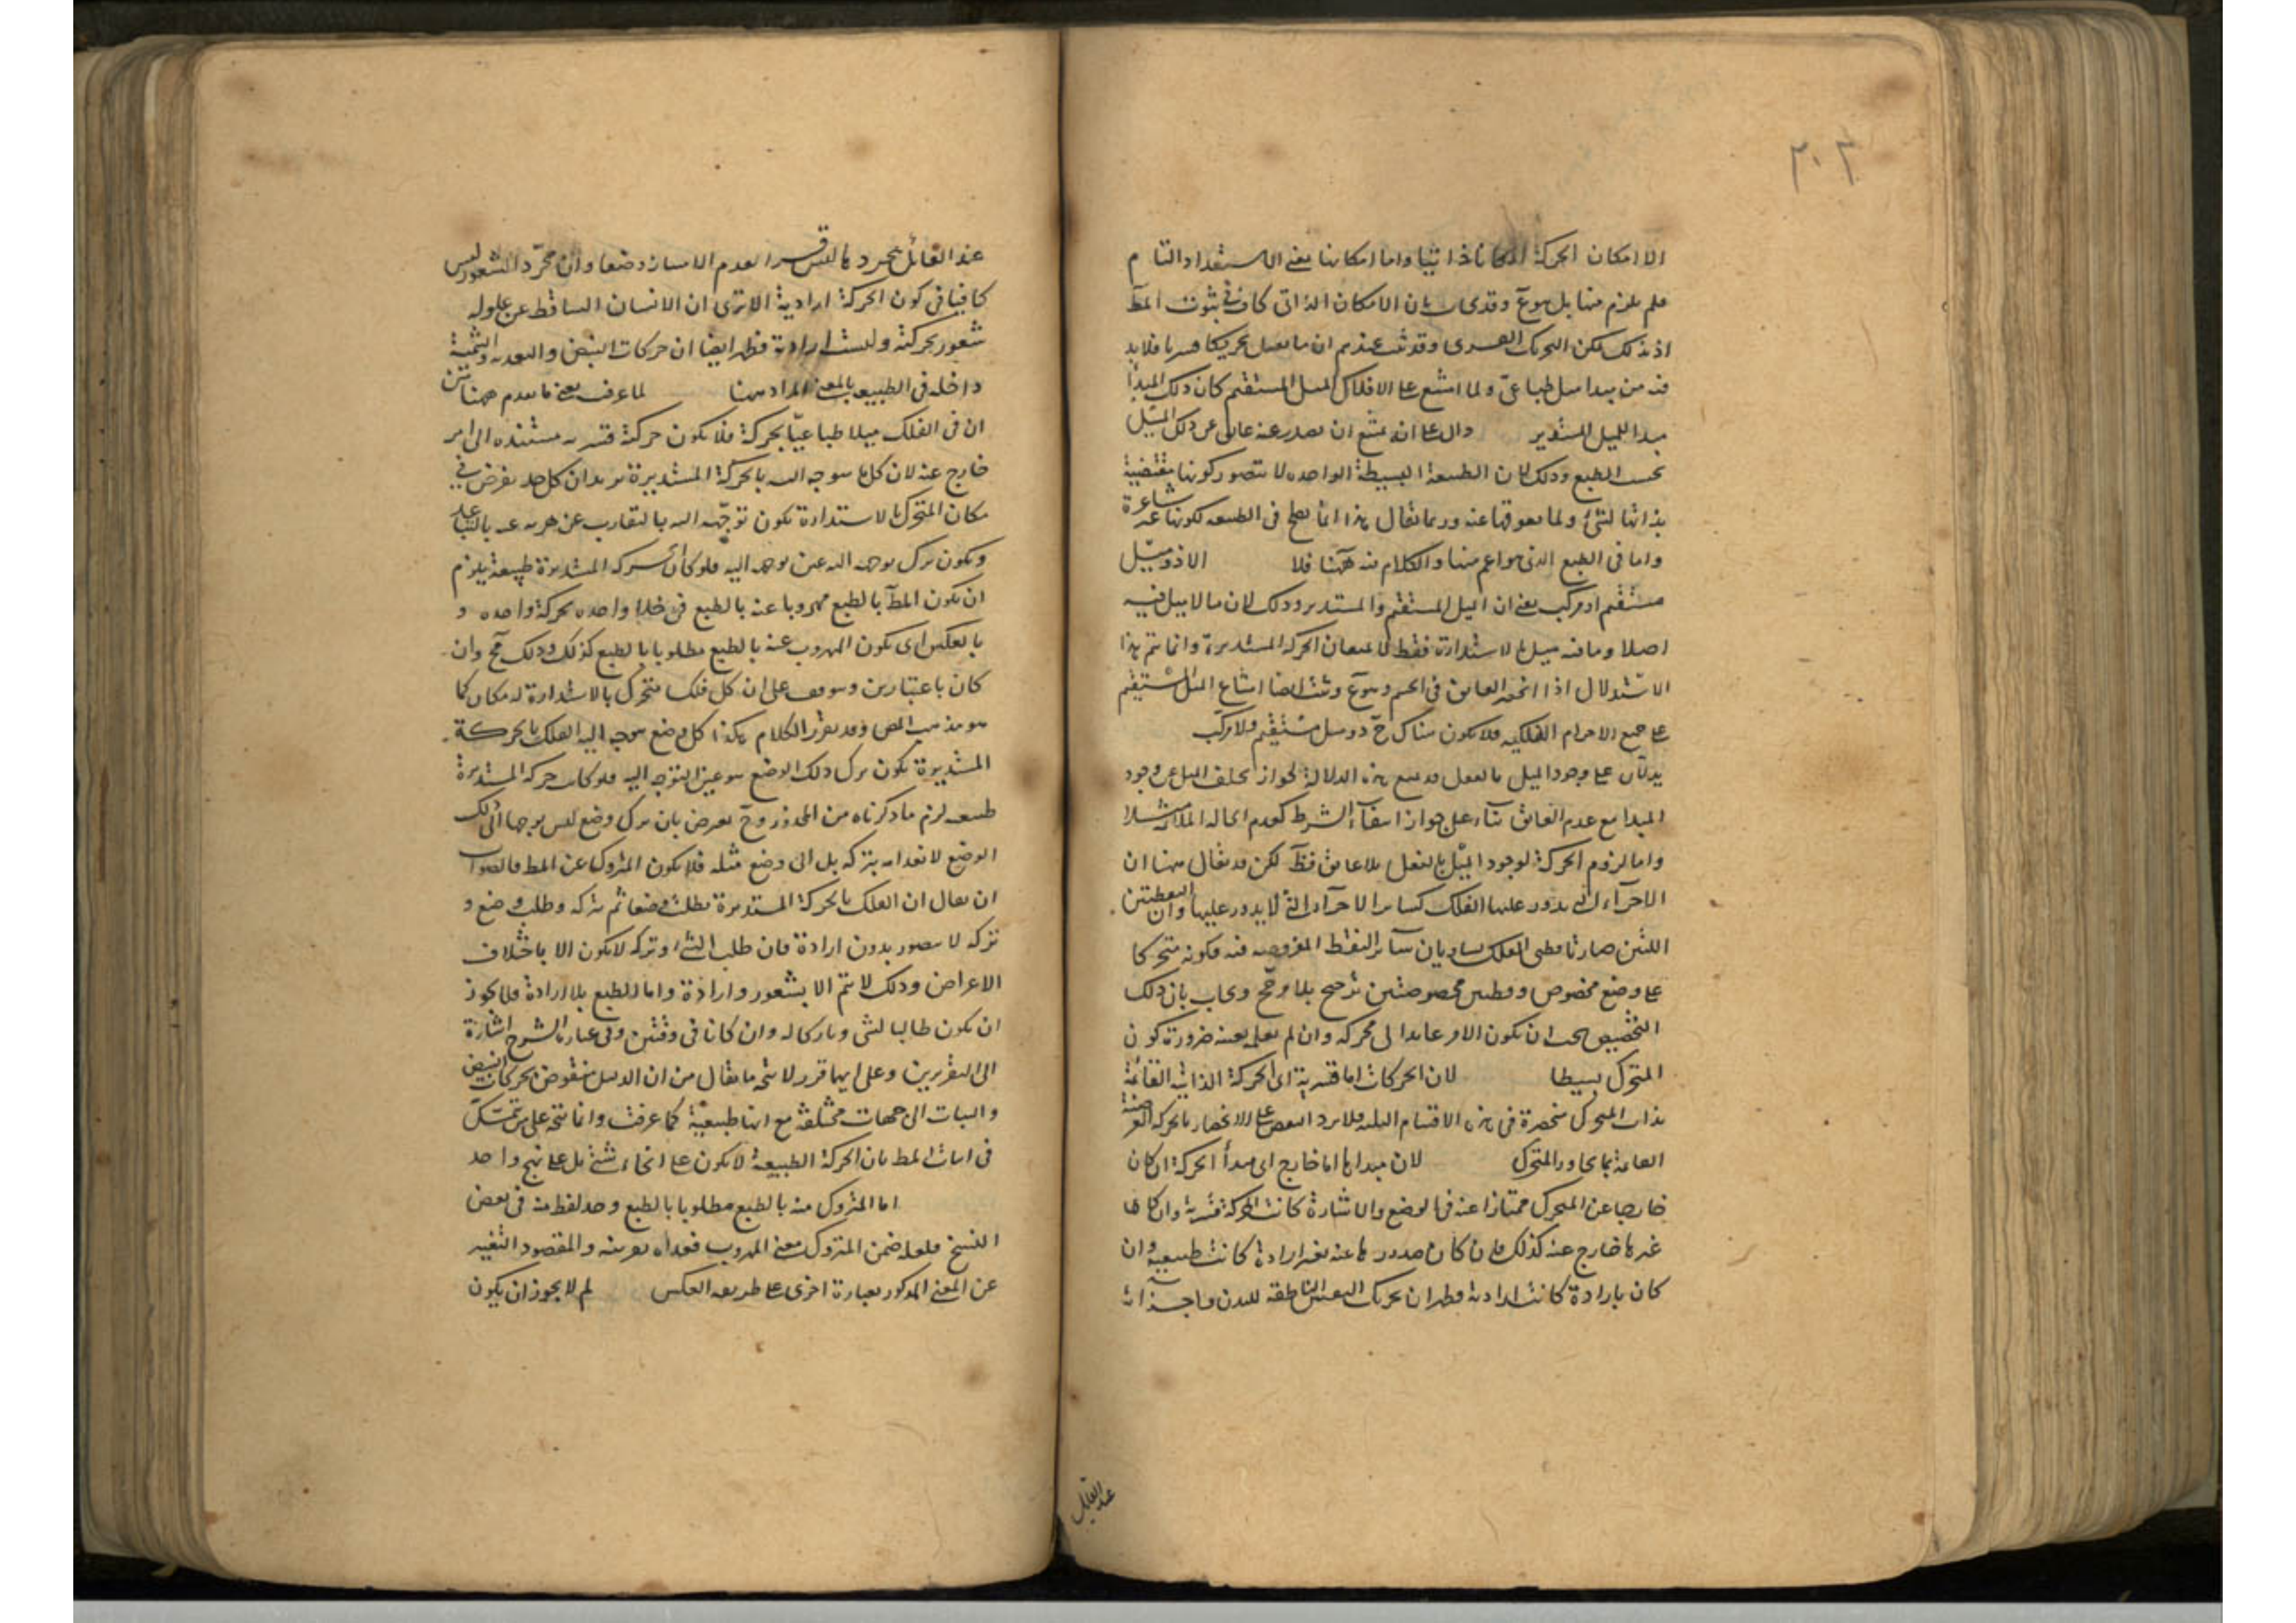 ٢٠٣
الا امكان الحركة امكانا ذاتيا واما امكانها بمعنى الاستعداد التام
فلم يلزم منها بل هو ع وقد يجاب بان الامكان الذاتى كاف فى ثبوت المط
اذ بذلك يمكن التحريك القسرى وقد ثبت عندهم ان ما يقبل تحريكا قسريا فلا بد
فيه من مبدا ميل طباعى ولما امتنع على الافلاك الميل المستقيم كان ذلك المبدأ
مبدا للميل المستدير دال على انه يمتنع ان يصدر عنه عائق عن ذلك الميل
بحسب الطبع وذلك لان الطبيعة البسيطة الواحدة لا يتصور كونها مقتضية
بذاتها لشئ ولما يعوقها عنه وربما يقال هذا انما يصح فى الطبيعة لكونها غير شاعرة
واما فى الطبع الذى هو اعم منها والكلام فيه ههنا فلا الا ذو ميل
مستقيم او مركب يعنى ان الميل المستقيم والمستدير وذلك لان ما لا ميل فيه
اصلا وما فيه ميل الاستدارة فقط لا يمنعان الحركة المستديرة وانما يتم هذا
الاستدلال اذا انحصر العائق فى الجسم وهو ع وثبت ايضا امتناع الميل المستقيم
على جميع الاجرام الفلكية فلا يكون هناك ح ذو ميل مستقيم ولا مركب
يدلان على وجود الميل بالفعل قد يمنع هذه الدلالة لجواز تخلف الميل عن وجود
المبدا مع عدم العائق بناء على جواز انتفاء الشرط كعدم الحالة الملائمة مثلا
واما لزوم الحركة لوجود الميل بالفعل بلا عائق فظ لكن قد يقال ههنا ان
الاجزاء التى يدور عليها الفلك كسائر الاجزاء التى لا يدور عليها وان النقطتين
اللتين صارتا قطبى الفلك يساويان سائر النقط المفروضة فيه فكونه متحركا
على وضع مخصوص وقطبين مخصوصتين ترجيح بلا مرجح ويجاب بان ذلك
التخصيص يجب ان يكون لامر عائدا الى محركه وان لم نعلمه بعينه ضرورة كون
المتحرك بسيطا لان الحركات اما قسرية اى الحركة الذاتية القائمة
بذات المتحرك منحصرة فى هذه الاقسام الثلثة فلا يرد النقض على الانحصار بالحركة العرضية
القائمة بما يجاور المتحرك لان مبداها اما خارج اى مبدأ الحركة ان كان
خارجا عن المتحرك ممتازا عنه فى الوضع والاشارة كانت الحركة قسرية وان كان
غيرها خارج عنه كذلك فان كان صدورها عنه بغير ارادة كانت طبيعية وان
كان بارادة كانت ارادية فظهر ان تحريك النفس الناطقة للبدن واجزائه
عند القائل
عند القائل بتجردها ليس قسرا لعدم الامتياز وضعا وان مجرد الشعور ليس
كافيا فى كون الحركة ارادية الا ترى ان الانسان الساقط عن علو له
شعور بحركته وليست ارادية فظهر ايضا ان حركات النبض والتغذية والتنمية
داخلة فى الطبيعية بالمعنى المراد ههنا لما عرف يعنى ما تقدم ههنا من
ان فى الفلك ميلا طباعيا بحركة فلا يكون حركته قسرية مستندة الى امر
خارج عنه لان كل ما يتوجه اليه بالحركة المستديرة يريد ان كل حد يفرض فى
مكان المتحرك بالاستدارة يكون توجهه اليه بالتقارب عن هربه عنه بالتباعد
ويكون ترك توجهه اليه عين توجهه اليه فلو كانت الحركة المستديرة طبيعية يلزم
ان يكون المط بالطبع مهروبا عنه بالطبع فى حالة واحدة بحركة واحدة و
بالعكس اى يكون المهروب عنه بالطبع مطلوبا بالطبع كذلك وذلك مح وان
كان باعتبارين وموقوف على ان كل فلك متحرك بالاستدارة له مكان كما
هو مذهب المص وقد يقرر الكلام هكذا كل وضع يتوجه اليه الفلك بالحركة
المستديرة يكون ترك ذلك الوضع هو عين التوجه اليه فلو كانت حركة المستديرة
طبيعية لزم ما ذكرناه من المحذور وح يعترض بان ترك وضع ليس توجها الى ذلك
الوضع لانعدامه بتركه بل الى وضع مثله فلا يكون المتروك عين المط فالصواب
ان يقال ان الفلك بالحركة المستديرة يطلب وضعا ثم يتركه وطلب وضع و
تركه لا يتصور بدون ارادة فان طلب الشئ وتركه لا يكون الا باختلاف
الاعراض وذلك لا يتم الا بشعور وارادة واما الطبع بلا ارادة فلا يجوز
ان يكون طالبا لشئ وتاركا له وان كانا فى وقتين وفى عبارة الشرح اشارة
الى التقريرين وعلى ايهما قرر لا يتجه ما يقال من ان الدليل منقوض بحركات النبض
والنبات الى جهات مختلفة مع انها طبيعية كما عرفت وانما يتجه على من تمسك
فى اثبات المط بان الحركة الطبيعية لا يكون على انحاء شتى بل على نهج واحد
اما المتروك منه بالطبع مطلوبا بالطبع وجد لفظ منه فى بعض
النسخ فلعله ضمن المتروك معنى المهروب فعداه تعديته والمقصود التعبير
عن المعنى المذكور بعبارة اخرى على طريقة العكس لم لا يجوز ان يكون